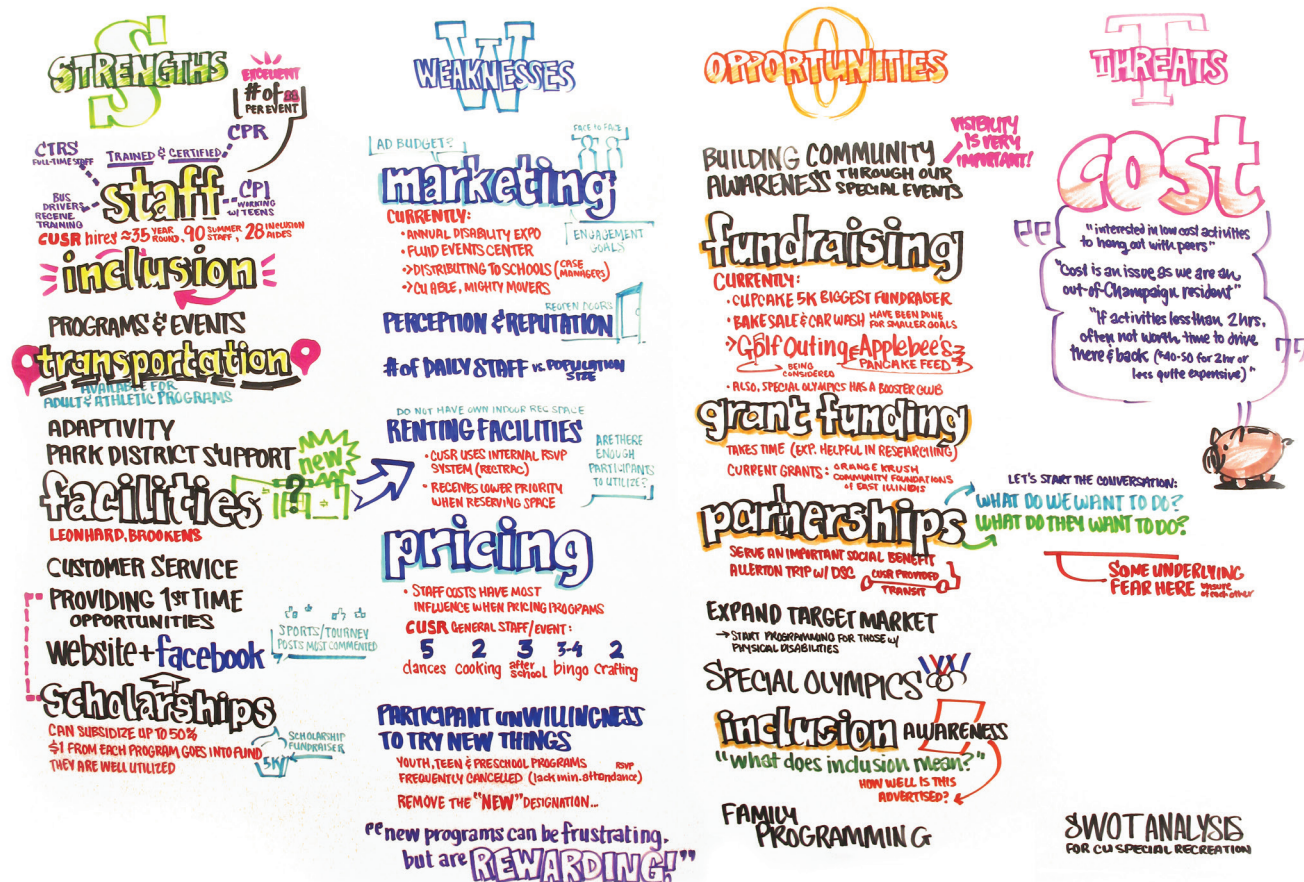 S
STRENGTHS
EXCELLENT
# of
PER EVENT
CPR
CTRS
FULL-TIME STAFF
TRAINED & CERTIFIED
staff
BUS
DRIVERS
RECEIVE
TRAINING
CPI
WORKING
W/ TEENS
CUSR hires ≈35 YEAR ROUND, 90 SUMMER STAFF, 28 INCLUSION AIDES
inclusion
PROGRAMS & EVENTS
transportation
AVAILABLE FOR
ADULT & ATHLETIC PROGRAMS
ADAPTIVITY
PARK DISTRICT SUPPORT
new
facilities
?
LEONHARD, BROOKENS
CUSTOMER SERVICE
PROVIDING 1ST TIME
OPPORTUNITIES
website + facebook
SPORTS/TOURNEY
POSTS MOST COMMENTED
Scholarships
CAN SUBSIDIZE UP TO 50%
$1 FROM EACH PROGRAM GOES INTO FUND
THEY ARE WELL UTILIZED
SCHOLARSHIP
FUNDRAISER
5K
W
WEAKNESSES
AD BUDGET?
FACE TO FACE
marketing
CURRENTLY:
• ANNUAL DISABILITY EXPO
• FLUID EVENTS CENTER
-> DISTRIBUTING TO SCHOOLS (CASE MANAGERS)
-> CU ABLE, MIGHTY MOVERS
ENGAGEMENT
GOALS
REOPEN DOORS
PERCEPTION & REPUTATION
# of DAILY STAFF vs. POPULATION SIZE
DO NOT HAVE OWN INDOOR REC SPACE
RENTING FACILITIES
• CUSR USES INTERNAL RSVP
SYSTEM (RECTRAC)
• RECEIVES LOWER PRIORITY
WHEN RESERVING SPACE
ARE THERE
ENOUGH
PARTICIPANTS
TO UTILIZE?
pricing
• STAFF COSTS HAVE MOST
INFLUENCE WHEN PRICING PROGRAMS
CUSR GENERAL STAFF/EVENT:
5 2 3 3-4 2
dances cooking after school bingo crafting
PARTICIPANT UNWILLINGNESS
TO TRY NEW THINGS
YOUTH, TEEN & PRESCHOOL PROGRAMS RSVP
FREQUENTLY CANCELLED (lack min. attendance)
REMOVE THE "NEW" DESIGNATION...
"new programs can be frustrating,
but are REWARDING!"
O
OPPORTUNITIES
VISIBILITY
IS VERY
IMPORTANT!
BUILDING COMMUNITY
AWARENESS THROUGH OUR
SPECIAL EVENTS
fundraising
CURRENTLY:
• CUPCAKE 5K BIGGEST FUNDRAISER
• BAKE SALE & CAR WASH HAVE BEEN DONE
FOR SMALLER GOALS
-> Golf Outing & Applebee's
BEING
CONSIDERED
PANCAKE FEED
• ALSO, SPECIAL OLYMPICS HAS A BOOSTER CLUB
grant funding
TAKES TIME (EXP. HELPFUL IN RESEARCHING)
CURRENT GRANTS: ORANGE KRUSH
COMMUNITY FOUNDATIONS
of EAST ILLINOIS
partnerships
SERVE AN IMPORTANT SOCIAL BENEFIT
ALLERTON TRIP W/ DSC
CUSR PROVIDED
TRANSIT
EXPAND TARGET MARKET
→ START PROGRAMMING FOR THOSE w/
PHYSICAL DISABILITIES
SPECIAL OLYMPICS
inclusion AWARENESS
"what does inclusion mean?"
HOW WELL IS THIS
ADVERTISED?
FAMILY
PROGRAMMING
T
THREATS
COST
"interested in low cost activities
to hang out with peers"
"Cost is an issue, as we are an
out-of-Champaign resident"
"If activities less than 2 hrs,
often not worth time to drive
there & back ($40-50 for 2hr or
less quite expensive)"
LET'S START THE CONVERSATION:
WHAT DO WE WANT TO DO?
WHAT DO THEY WANT TO DO?
SOME UNDERLYING
FEAR HERE unsure of each other
SWOT ANALYSIS
FOR CU SPECIAL RECREATION